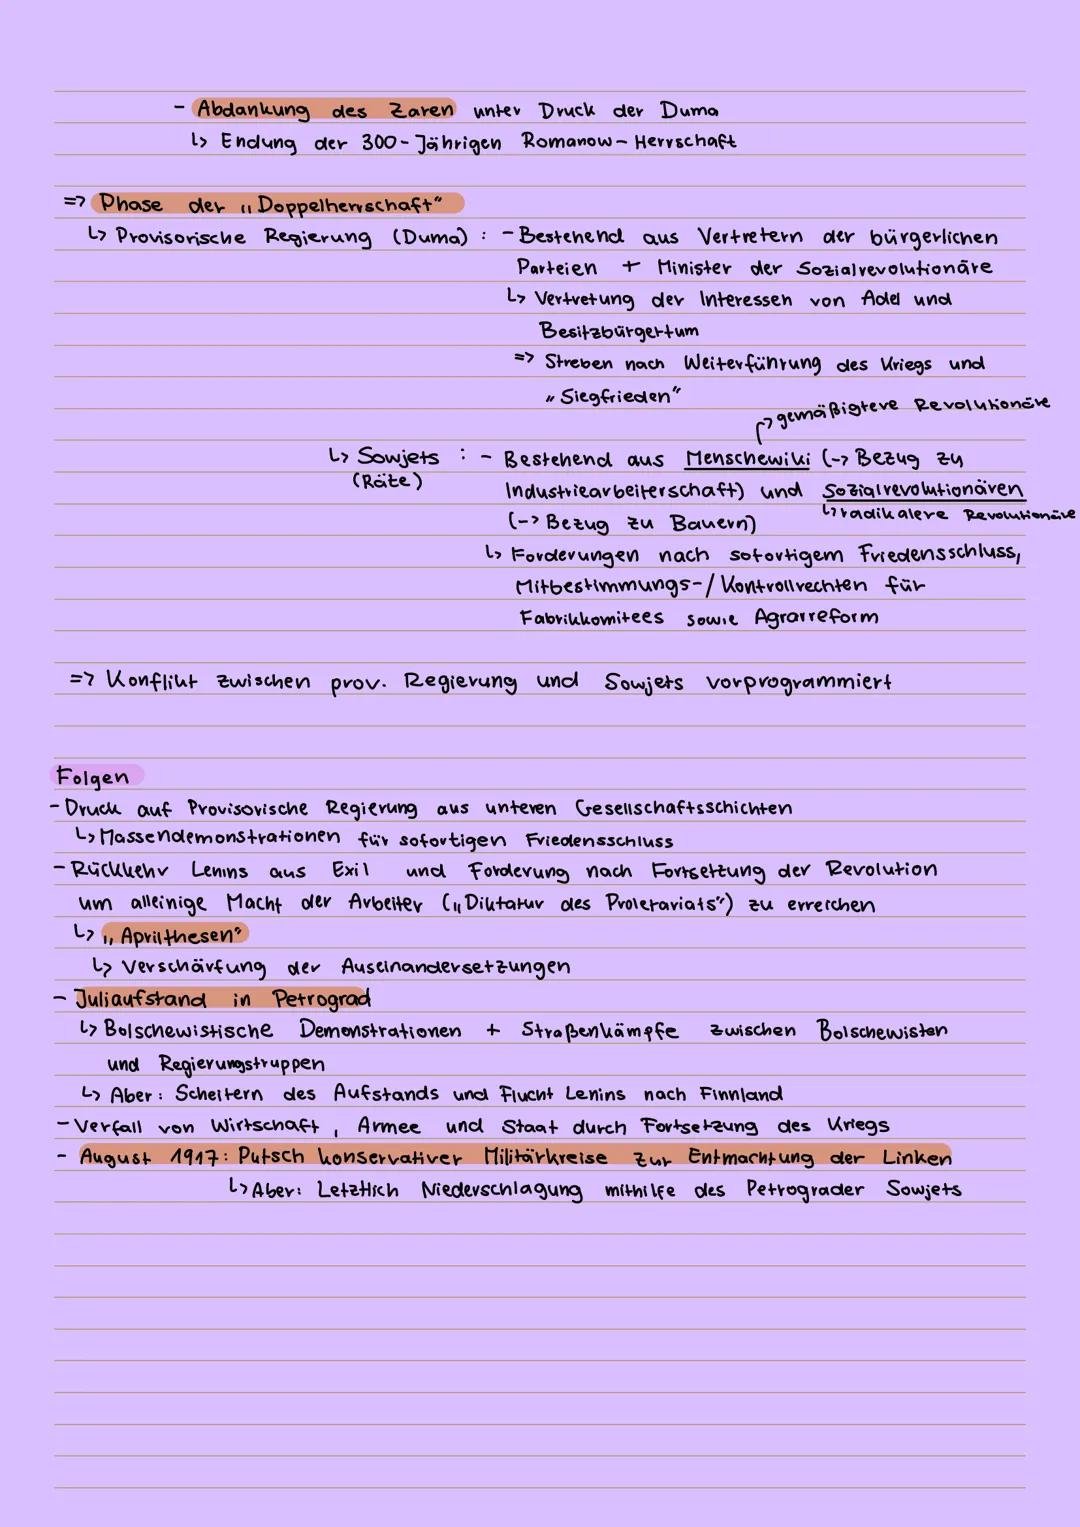 - Abdankung des Zaren unter Druck der Duma
↳ Endung der 300-Jährigen Romanow-Herrschaft
=> Phase der „Doppelherrschaft“
↳ Provisorische Regierung (Duma) : - Bestehend aus Vertretern der bürgerlichen
Parteien + Minister der Sozialrevolutionäre
↳ Vertretung der Interessen von Adel und
Besitzbürgertum
=> Streben nach Weiterführung des Kriegs und
„Siegfrieden“
↱ gemäßigtere Revolutionäre
↳ Sowjets : - Bestehend aus Menschewiki (-> Bezug zu
(Räte)
Industriearbeiterschaft) und Sozialrevolutionären
↳ radikalere Revolutionäre
(-> Bezug zu Bauern)
↳ Forderungen nach sofortigem Friedensschluss,
Mitbestimmungs-/Kontrollrechten für
Fabrikkomitees sowie Agrarreform
=> Konflikt zwischen prov. Regierung und Sowjets vorprogrammiert
Folgen
- Druck auf Provisorische Regierung aus unteren Gesellschaftsschichten
↳ Massendemonstrationen für sofortigen Friedensschluss
- Rückkehr Lenins aus Exil und Forderung nach Fortsetzung der Revolution
um alleinige Macht der Arbeiter („Diktatur des Proletariats“) zu erreichen
↳ „Aprilthesen“
↳ Verschärfung der Auseinandersetzungen
- Juliaufstand in Petrograd
↳ Bolschewistische Demonstrationen + Straßenkämpfe zwischen Bolschewisten
und Regierungstruppen
↳ Aber: Scheitern des Aufstands und Flucht Lenins nach Finnland
- Verfall von Wirtschaft, Armee und Staat durch Fortsetzung des Kriegs
- August 1917: Putsch konservativer Militärkreise zur Entmachtung der Linken
↳ Aber: Letztlich Niederschlagung mithilfe des Petrograder Sowjets